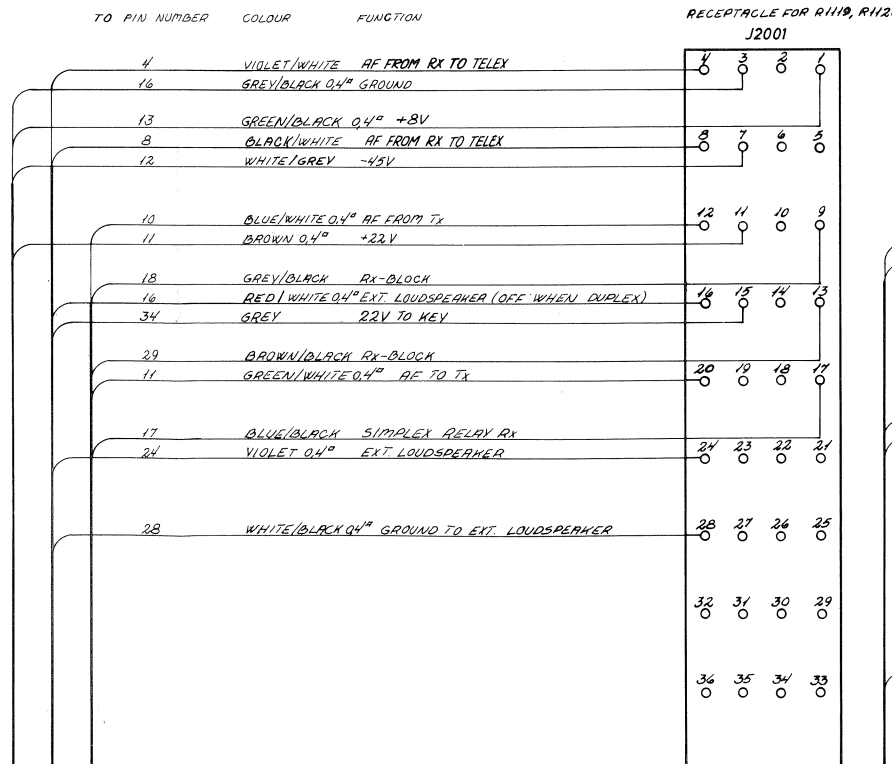 TO PIN NUMBER COLOUR FUNCTION
RECEPTACLE FOR R1119, R112
J2001
4 VIOLET/WHITE AF FROM RX TO TELEX
4 3 2 1
16 GREY/BLACK 0,4¤ GROUND
13 GREEN/BLACK 0,4¤ +8V
8 BLACK/WHITE AF FROM RX TO TELEX
8 7 6 5
12 WHITE/GREY -45V
10 BLUE/WHITE 0,4¤ AF FROM Tx
12 11 10 9
11 BROWN 0,4¤ +22V
18 GREY/BLACK Rx-BLOCK
16 RED/WHITE 0,4¤ EXT. LOUDSPEAKER (OFF WHEN DUPLEX)
16 15 14 13
34 GREY 22V TO KEY
29 BROWN/BLACK Rx-BLOCK
11 GREEN/WHITE 0,4¤ AF TO Tx
20 19 18 17
17 BLUE/BLACK SIMPLEX RELAY Rx
24 VIOLET 0,4¤ EXT. LOUDSPEAKER
24 23 22 21
28 WHITE/BLACK 0,4¤ GROUND TO EXT. LOUDSPEAKER
28 27 26 25
32 31 30 29
36 35 34 33